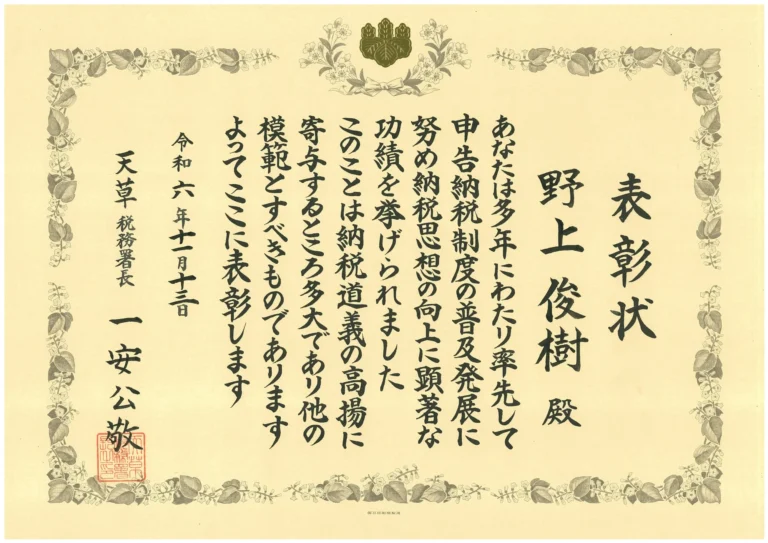 表彰状
野上俊樹 殿
あなたは多年にわたり率先して
申告納税制度の普及発展に
努め納税思想の向上に顕著な
功績を挙げられました
このことは納税道義の高揚に
寄与するところ多大であり他の
模範とすべきものであります
よってここに表彰します
令和六年十一月十三日
天草税務署長 一安公敬